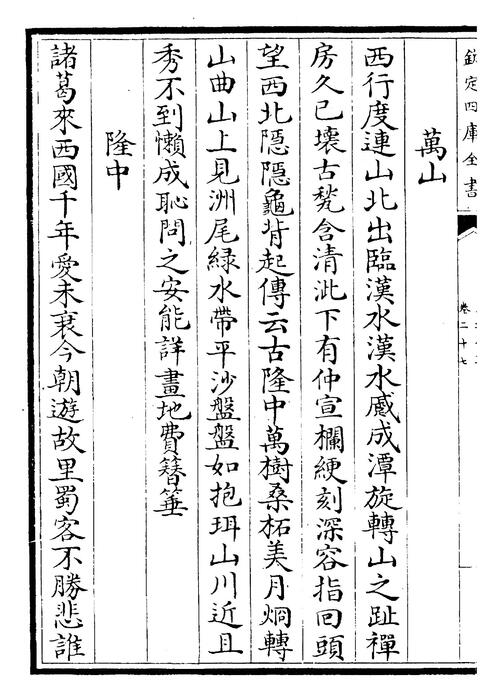 欽定四庫全書
卷二十七
萬山
西行度連山北出臨漢水漢水蹙成潭旋轉山之趾禪
房久已壞古甃含清泚下有仲宣欄綆刻深容指回頭
望西北隱隱龜背起傳云古隆中萬樹桑柘美月烱轉
山曲山上見洲尾緑水帶平沙盤盤如抱珥山川近且
秀不到懶成恥問之安能詳畫地費簪箠
隆中
諸葛來西國千年愛未衰今朝遊故里蜀客不勝悲誰